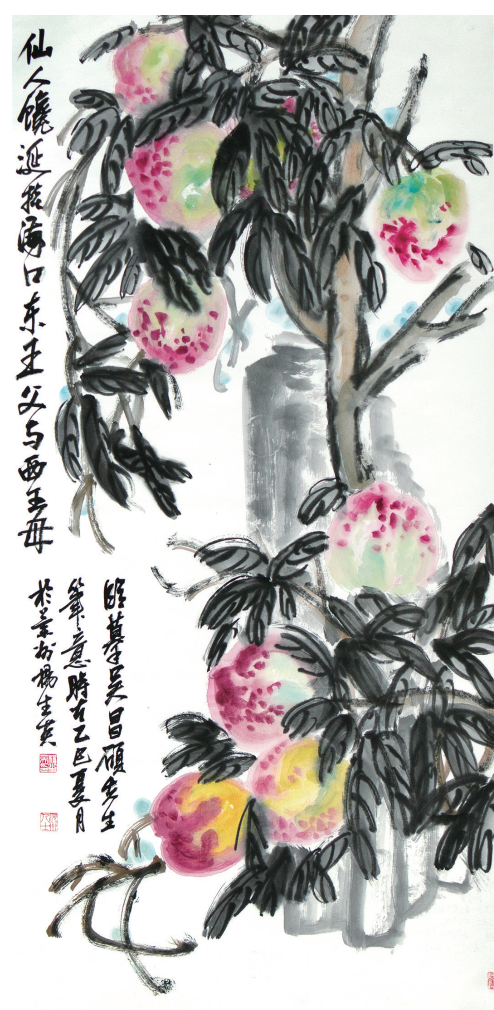 仙人馋涎挂海口东王父与西王母
临摹吴昌硕先生
笔意时在乙巳夏月
於景州杨生英